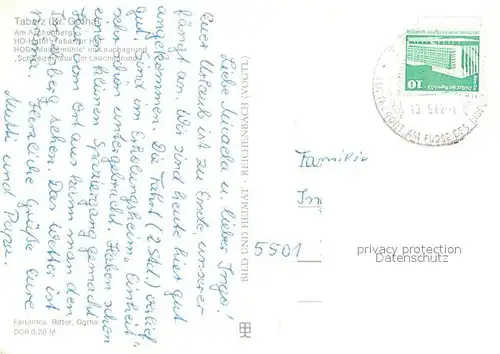 Tabarz (Kr. Gotha)
Am Aschenberg
HO-Hotel "Tabarzer Hof"
HOG "Massemühle" im Lauchagrund
"Schweizerhaus" im Lauchagrund
Liebe Micaela u. lieber Ingo!
Euer Urlaub ist zu Ende, unserer
fängt an. Wir sind heute hier gut
angekommen. Die Fahrt (2 Std.) verlief
gut. Sind im Erholungsheim "Einheit"
sehr schön untergebracht. Haben schon
einen kleinen Spaziergang gemacht
Von Ort aus kann man den
Inselsberg sehen. Das Wetter ist
schön. Herzliche Grüße eure
Mutti und Papa.
Farbfotos: Ritter, Gotha
DDR 0,20 M
BILD UND HEIMAT · REICHENBACH (VOGTL)
10
AM FUSSE DES
Familie
In
5501
privacy protection
Datenschutz